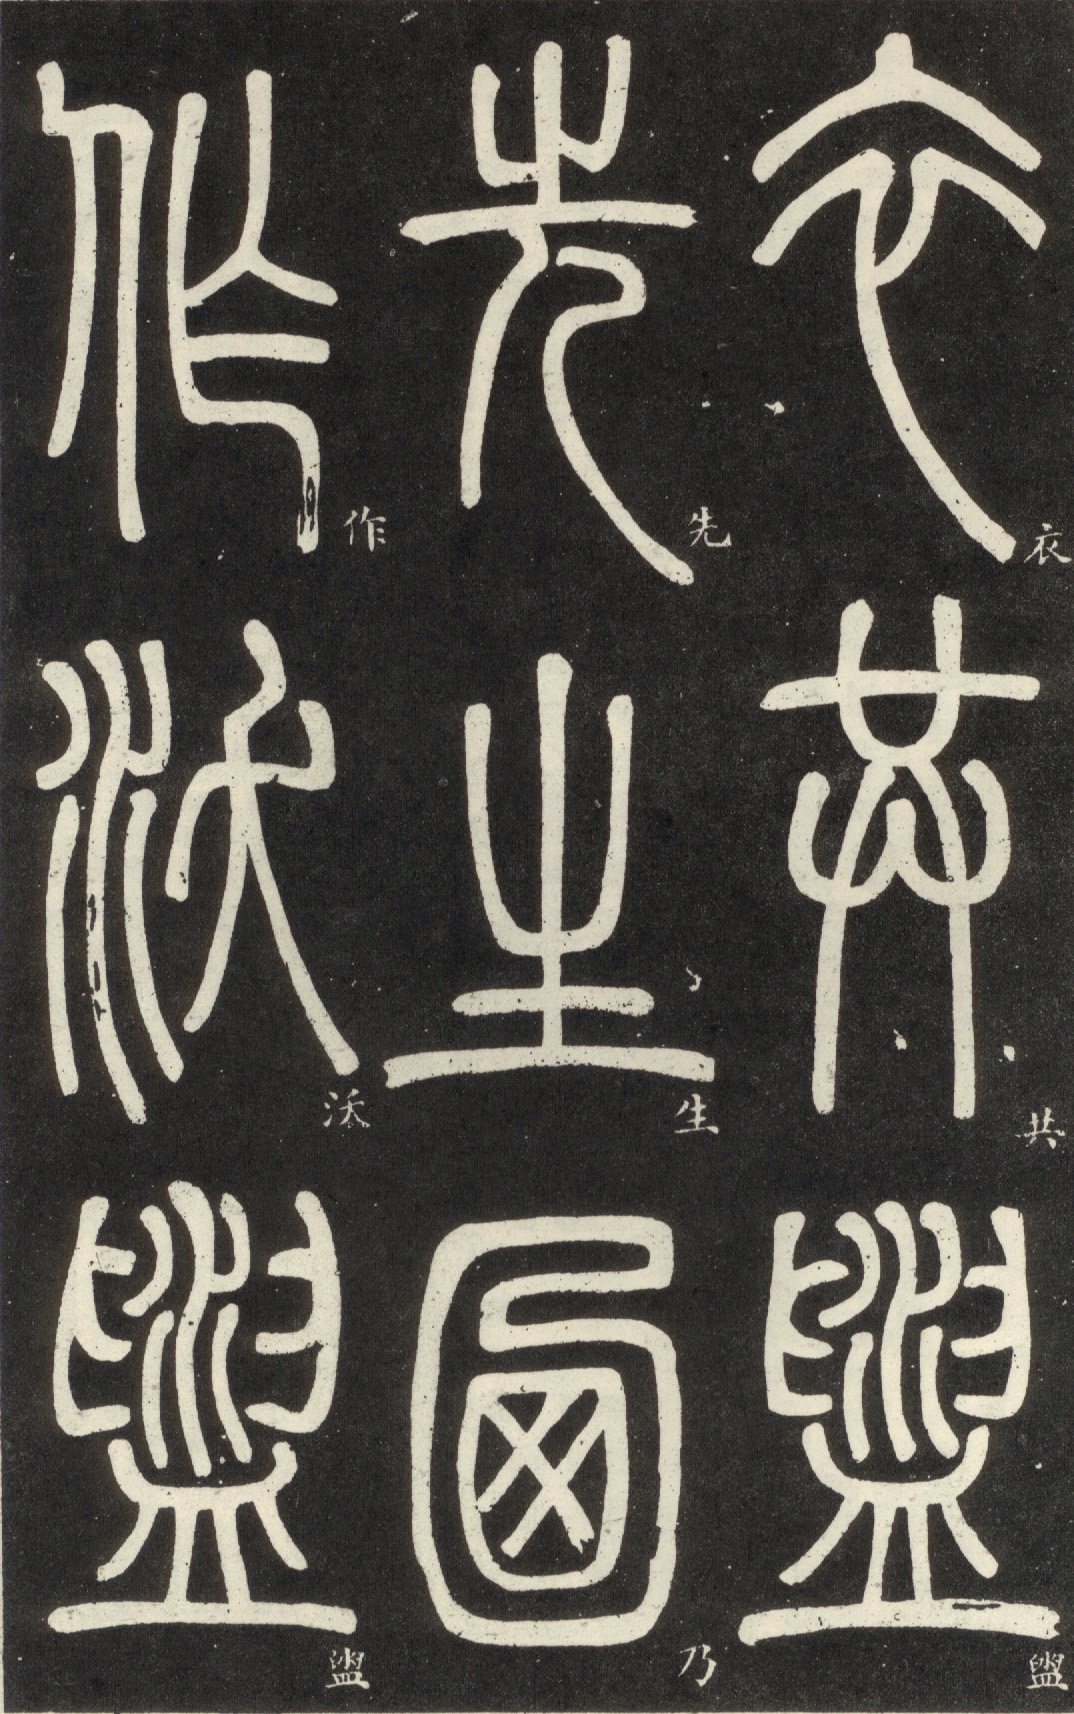 衣共盥
先生乃
作沃盥